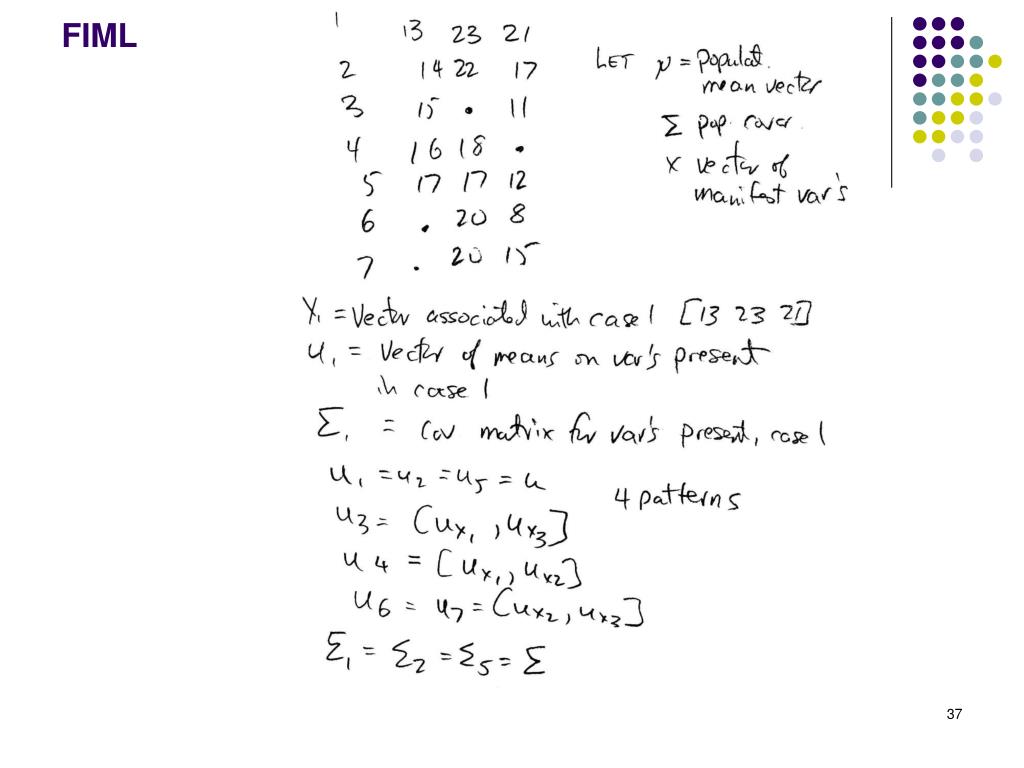 FIML
1 13 23 21
2 14 22 17
3 15 • 11
4 16 18 •
5 17 17 12
6 • 20 8
7 • 20 15
LET μ = populat.
mean vector
Σ pop. covar.
X vector of
manifest var's
X₁ = Vector associated with case 1 [13 23 21]
u₁ = Vector of means on var's present
in case 1
Σ₁ = Cov matrix for var's present, case 1
u₁ = u₂ = u₅ = u
4 patterns
u₃ = [uₓ₁, uₓ₃]
u₄ = [uₓ₁, uₓ₂]
u₆ = u₇ = [uₓ₂, uₓ₃]
Σ₁ = Σ₂ = Σ₅ = Σ
37